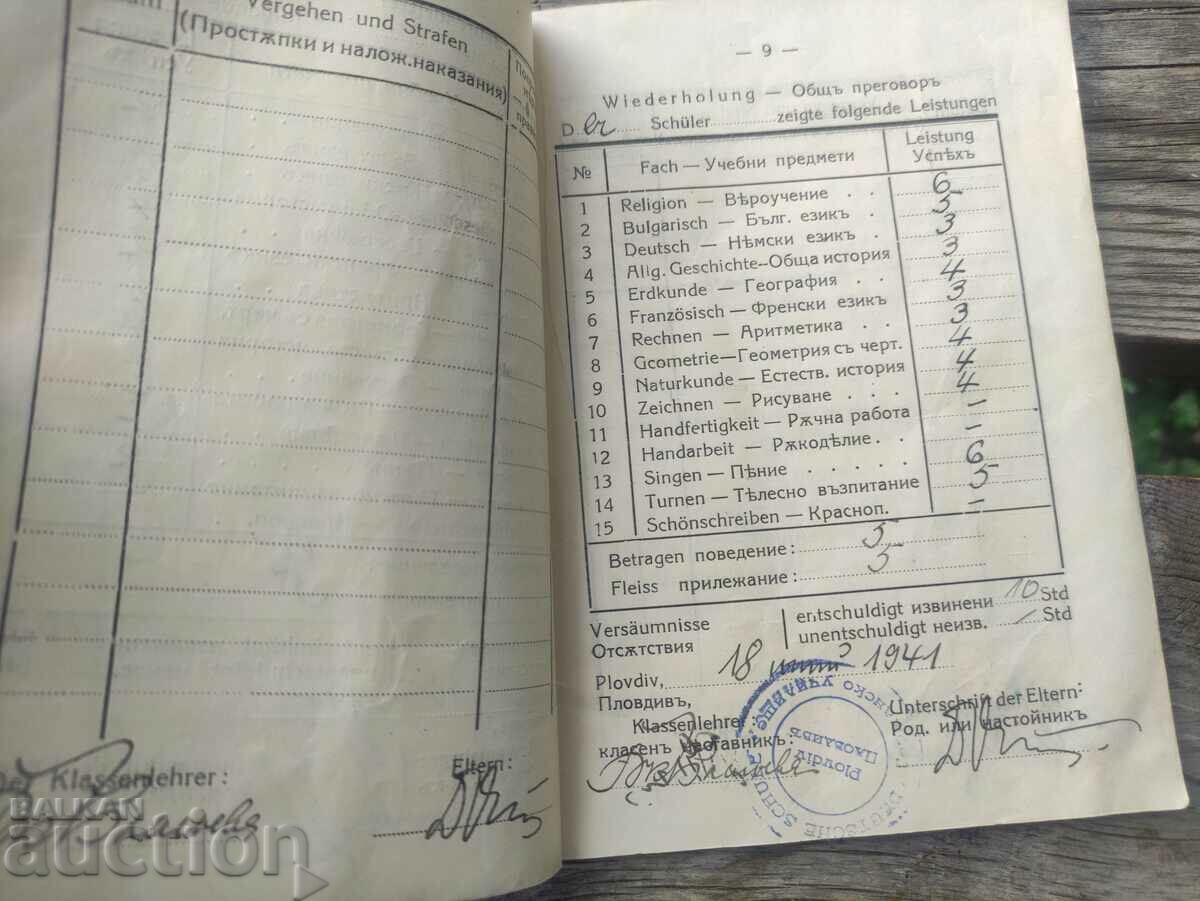 Vergehen und Strafen
(Простѫпки и налож.наказания)
Klassenlehrer:
Eltern:
— 9 —
Wiederholung — Общъ преговоръ
D er Schüler zeigte folgende Leistungen
№ Fach — Учебни предмети Leistung Успѣхъ
1 Religion — Вѣроучение . . 6
2 Bulgarisch — Бълг. езикъ . 3
3 Deutsch — Нѣмски езикъ . 3
4 Allg. Geschichte-Обща история 3
5 Erdkunde — География . . 4
6 Französisch — Френски езикъ 3
7 Rechnen — Аритметика . . 3
8 Gcometrie—Геометрия съ черт. 4
9 Naturkunde — Естеств. история 4
10 Zeichnen — Рисуване . . . 4
11 Handfertigkeit — Рѫчна работа –
12 Handarbeit — Рѫкодѣлие . . –
13 Singen — Пѣние . . . . . 6
14 Turnen — Тѣлесно възпитание 5
15 Schönschreiben — Красноп. –
Betragen поведение: 5
Fleiss прилежание: 5
Versäumnisse entschuldigt извинени 10 Std
Отсѫтствия unentschuldigt неизв. / Std
Plovdiv, 18 1941
Пловдивъ,
Klassenlehrer: Unterschrift der Eltern:
класенъ наставникъ: Род. или настойникъ
DEUTSCHE SCHULE
Plovdiv
Пловдивъ
УЧИЛИЩЕ
BALKAN
auction